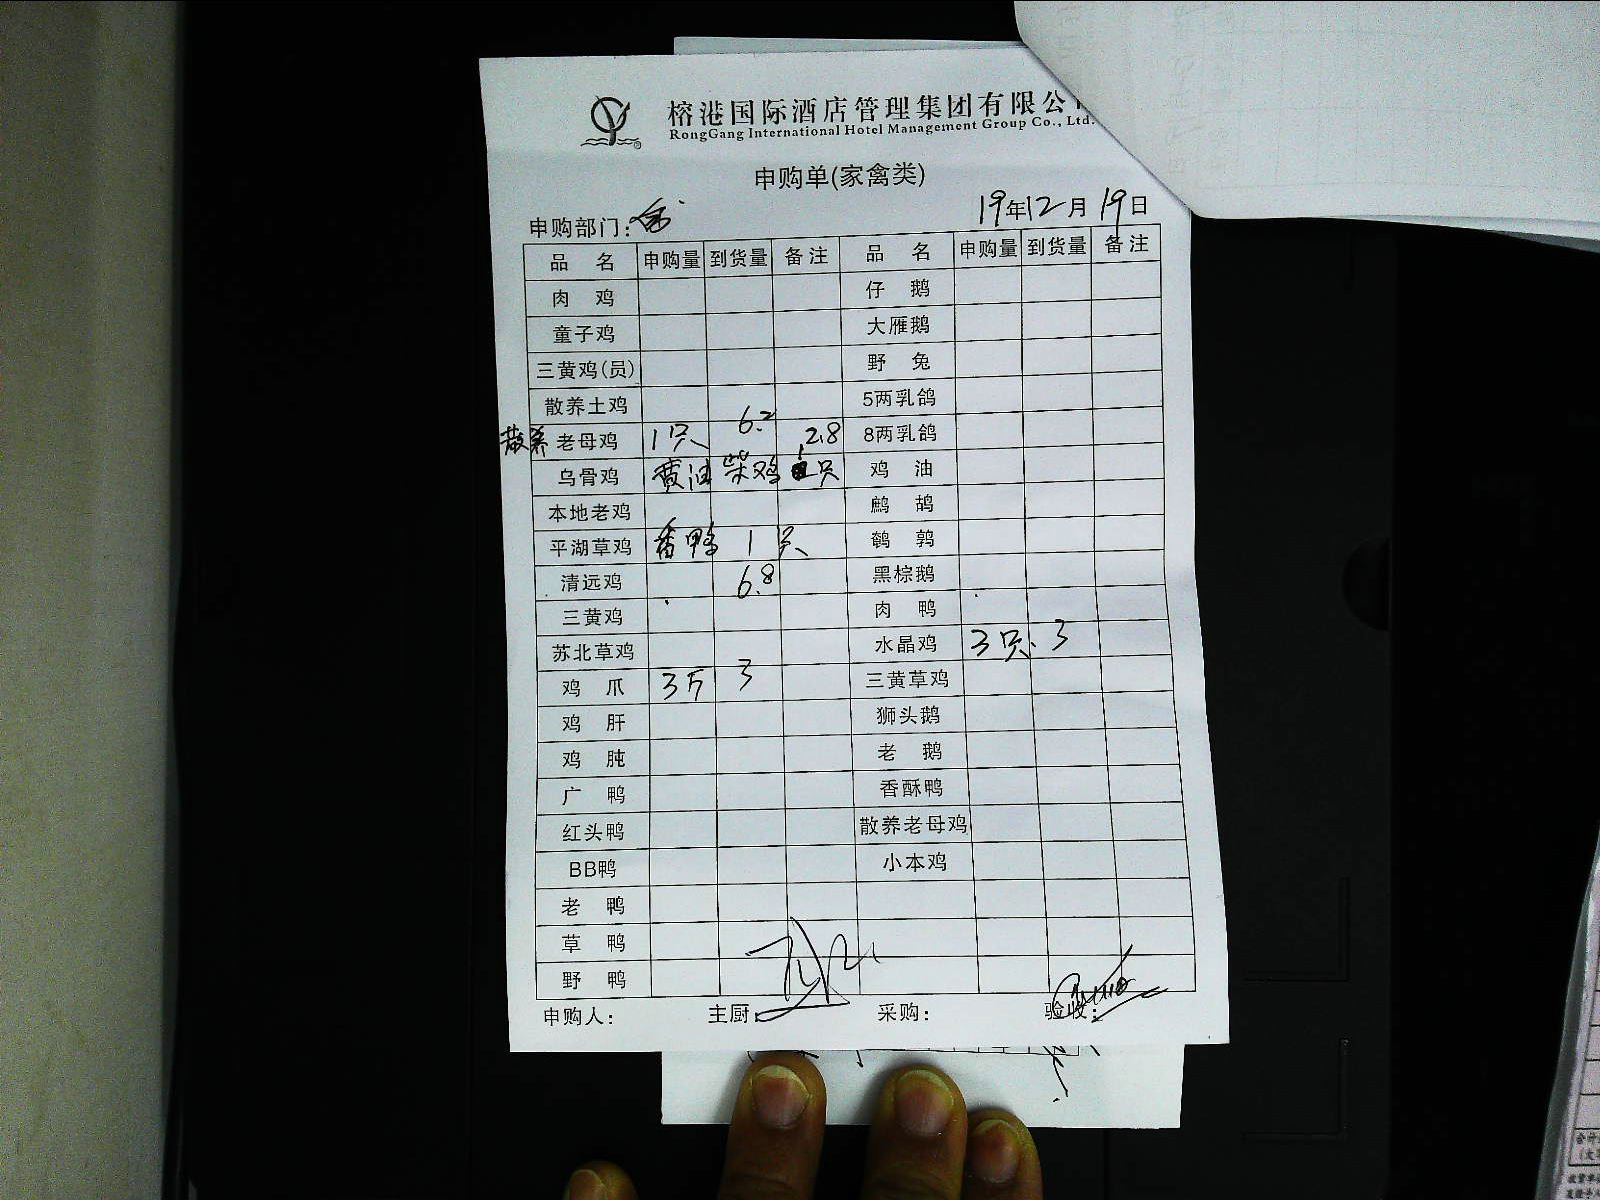 榕港国际酒店管理集团有限公
RongGang International Hotel Management Group Co., Ltd.
申购单(家禽类)
申购部门:
19年12月19日
品 名 申购量 到货量 备注 品 名 申购量 到货量 备注
肉 鸡 仔 鹅
童子鸡 大雁鹅
三黄鸡(员) 野 兔
散养土鸡 5两乳鸽
散养 老母鸡 1只 6.2 2.8 8两乳鸽
乌骨鸡 黄油 柴鸡 只 鸡 油
本地老鸡 鹧 鸪
平湖草鸡 番鸭 1只 鹌 鹑
清远鸡 6.8 黑棕鹅
三黄鸡 肉 鸭
苏北草鸡 水晶鸡 3只 3
鸡 爪 3斤 3 三黄草鸡
鸡 肝 狮头鹅
鸡 肫 老 鹅
广 鸭 香酥鸭
红头鸭 散养老母鸡
BB鸭 小本鸡
老 鸭
草 鸭
野 鸭
申购人: 主厨: 采购: 验收: